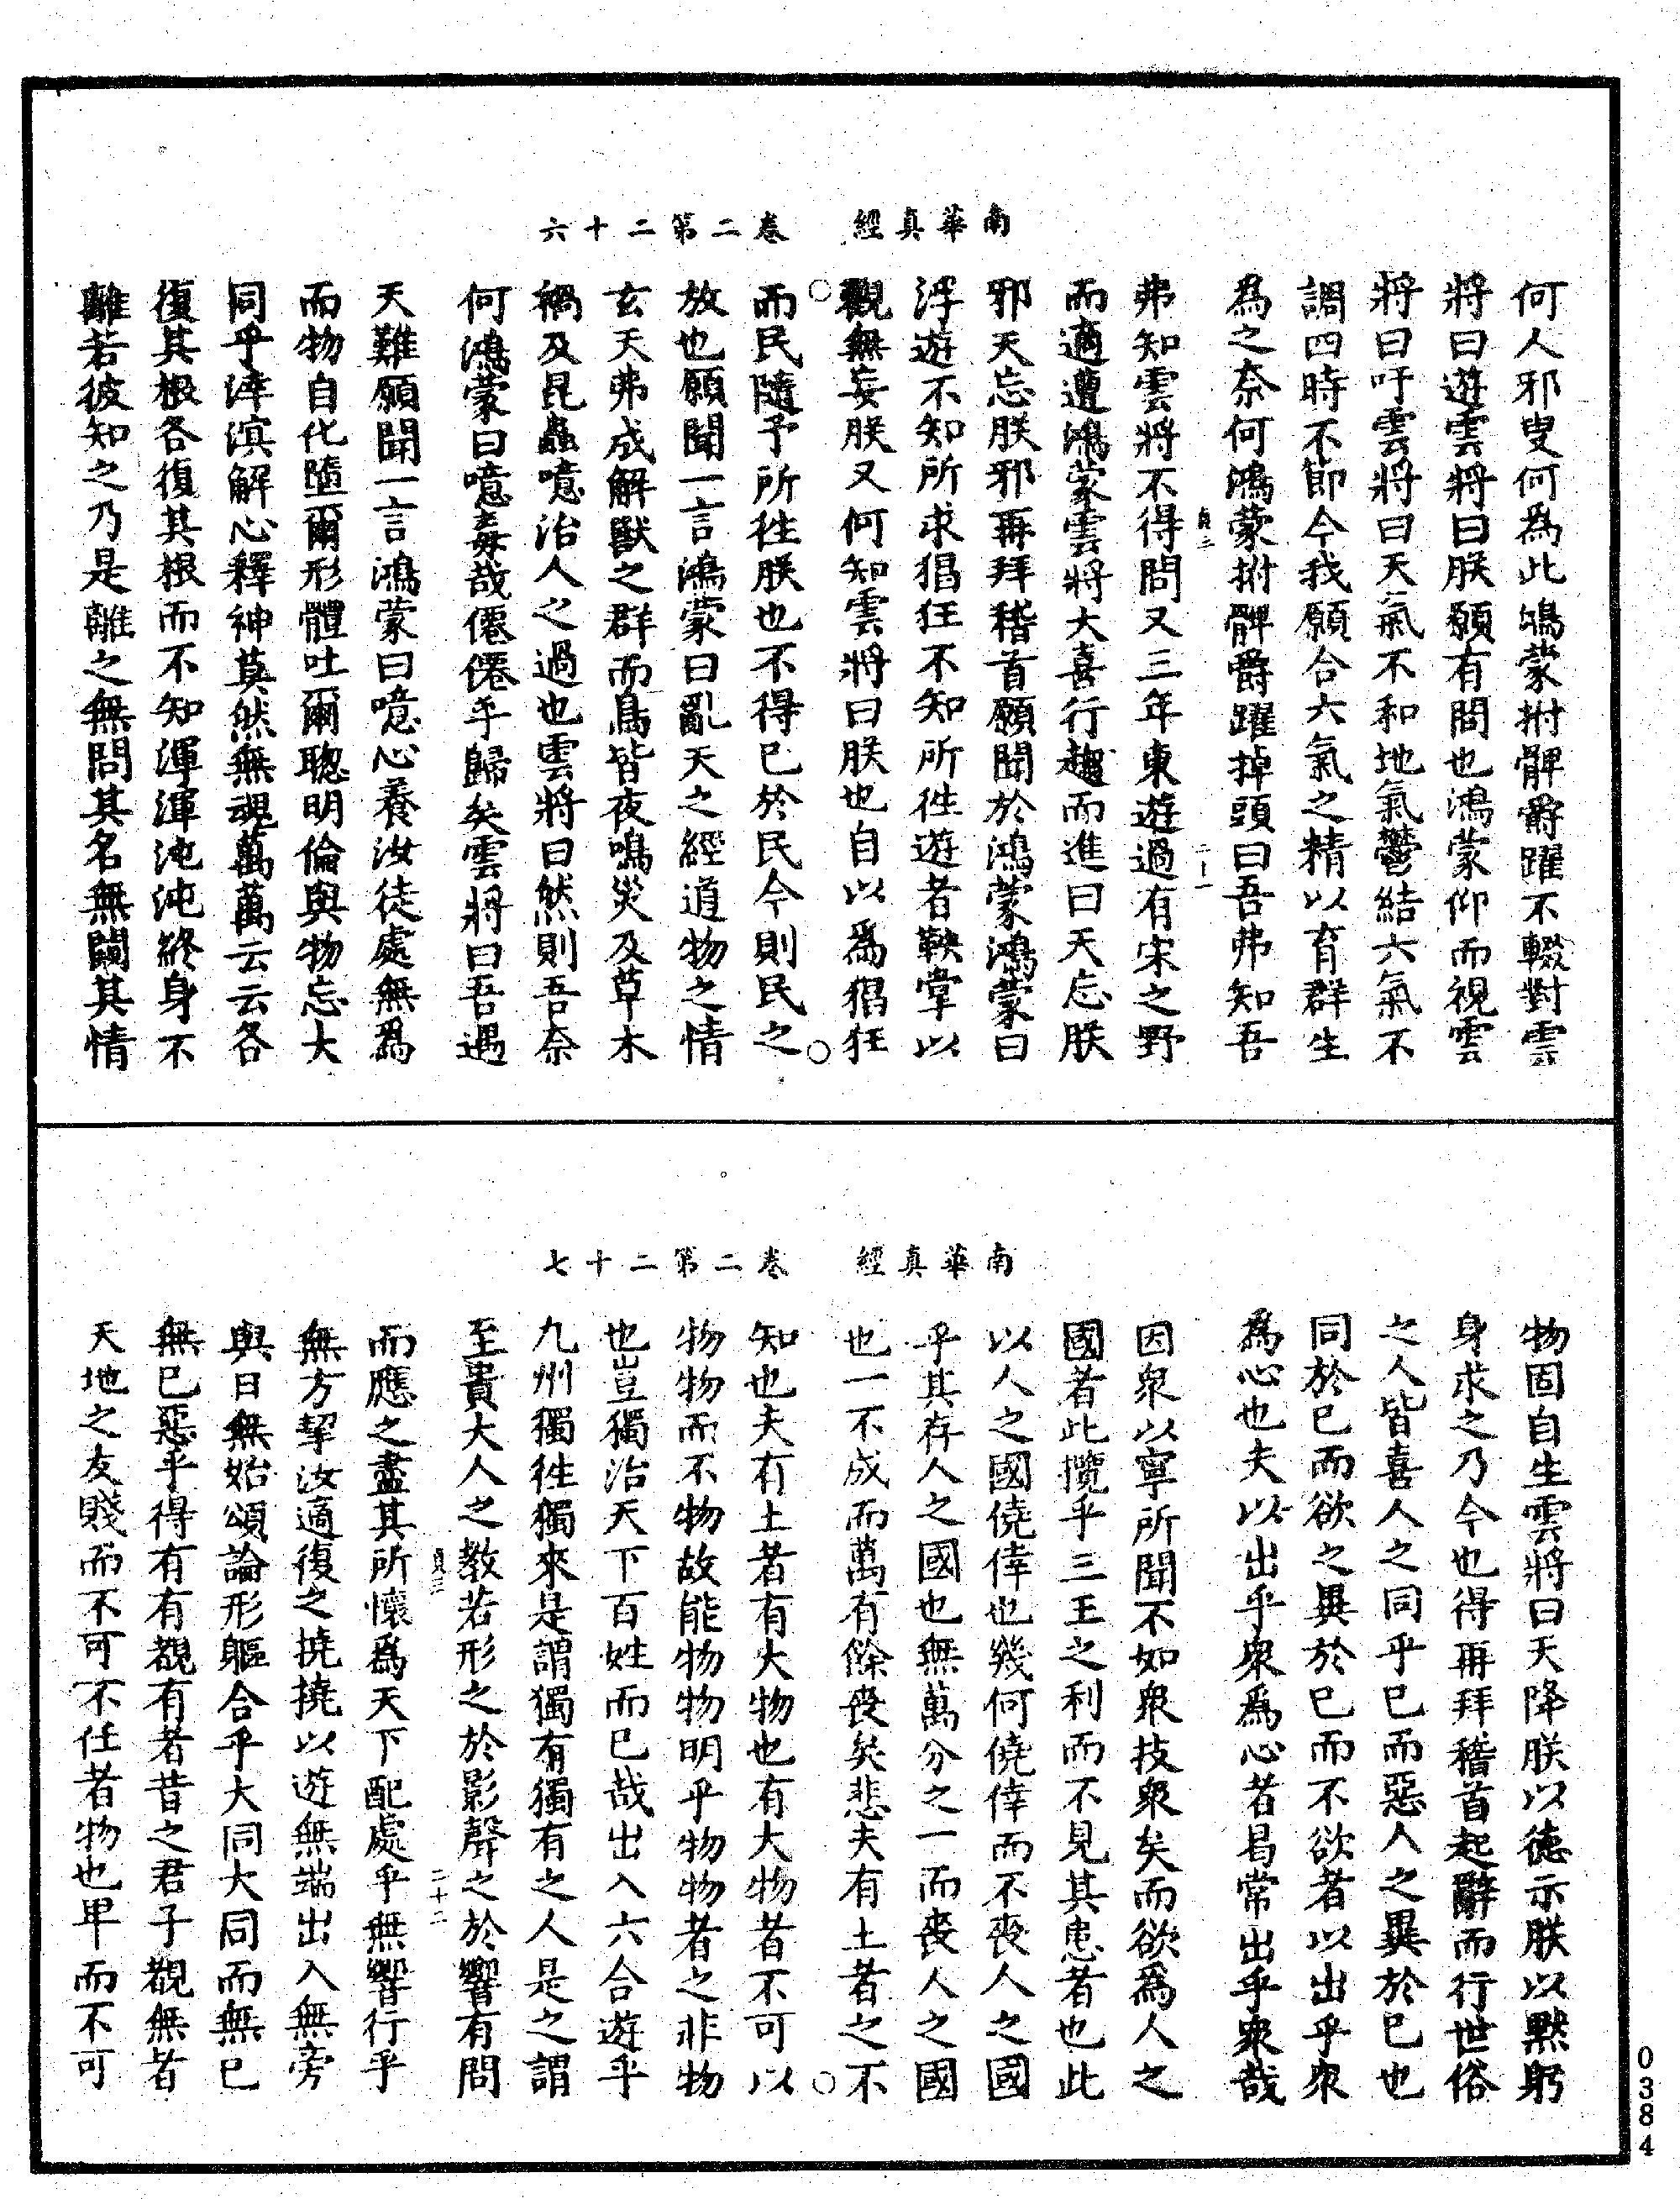 南華真經　卷二第二十六
何人邪叟何為此鴻蒙拊髀爵躍不輟對雲
將曰遊雲將曰朕願有問也鴻蒙仰而視雲
將曰吁雲將曰天氣不和地氣鬱結六氣不
調四時不節今我願合六氣之精以育群生
為之奈何鴻蒙拊髀爵躍掉頭曰吾弗知吾
貞三　二十一
弗知雲將不得問又三年東遊過有宋之野
而適遭鴻蒙雲將大喜行趨而進曰天忘朕
邪天忘朕邪再拜稽首願聞於鴻蒙鴻蒙曰
浮遊不知所求猖狂不知所徃遊者鞅掌以
觀無妄朕又何知雲將曰朕也自以為猖狂
而民隨予所徃朕也不得已於民今則民之
放也願聞一言鴻蒙曰亂天之經道物之情
玄天弗成解獸之群而鳥皆夜鳴災及草木
禍及昆蟲噫治人之過也雲將曰然則吾奈
何鴻蒙曰噫毒哉僊僊乎歸矣雲將曰吾遇
天難願聞一言鴻蒙曰噫心養汝徒處無為
而物自化墮爾形體吐爾聦明倫與物忘大
同乎涬溟解心釋神莫然無魂萬萬云云各
復其根各復其根而不知渾渾沌沌終身不
離若彼知之乃是離之無問其名無闚其情
南華真經　卷二第二十七
物固自生雲將曰天降朕以德示朕以默躬
身求之乃今也得再拜稽首起辭而行世俗
之人皆喜人之同乎已而惡人之異於已也
同於已而欲之異於已而不欲者以出乎衆
為心也夫以出乎衆為心者曷常出乎衆哉
因衆以寧所聞不如衆技衆矣而欲為人之
國者此攬乎三王之利而不見其患者也此
以人之國僥倖也幾何僥倖而不喪人之國
乎其存人之國也無萬分之一而喪人之國
也一不成而萬有餘喪矣悲夫有土者之不
知也夫有土者有大物也有大物者不可以
物物而不物故能物物明乎物物者之非物
也豈獨治天下百姓而已哉出入六合遊乎
九州獨徃獨來是謂獨有獨有之人是之謂
至貴大人之教若形之於影聲之於響有問
貞三　二十二
而應之盡其所懷為天下配處乎無響行乎
無方挈汝適復之撓撓以遊無端出入無旁
與日無始頌論形軀合乎大同大同而無已
無已惡乎得有有覩有者昔之君子覩無者
天地之友賤而不可不任者物也卑而不可
0384